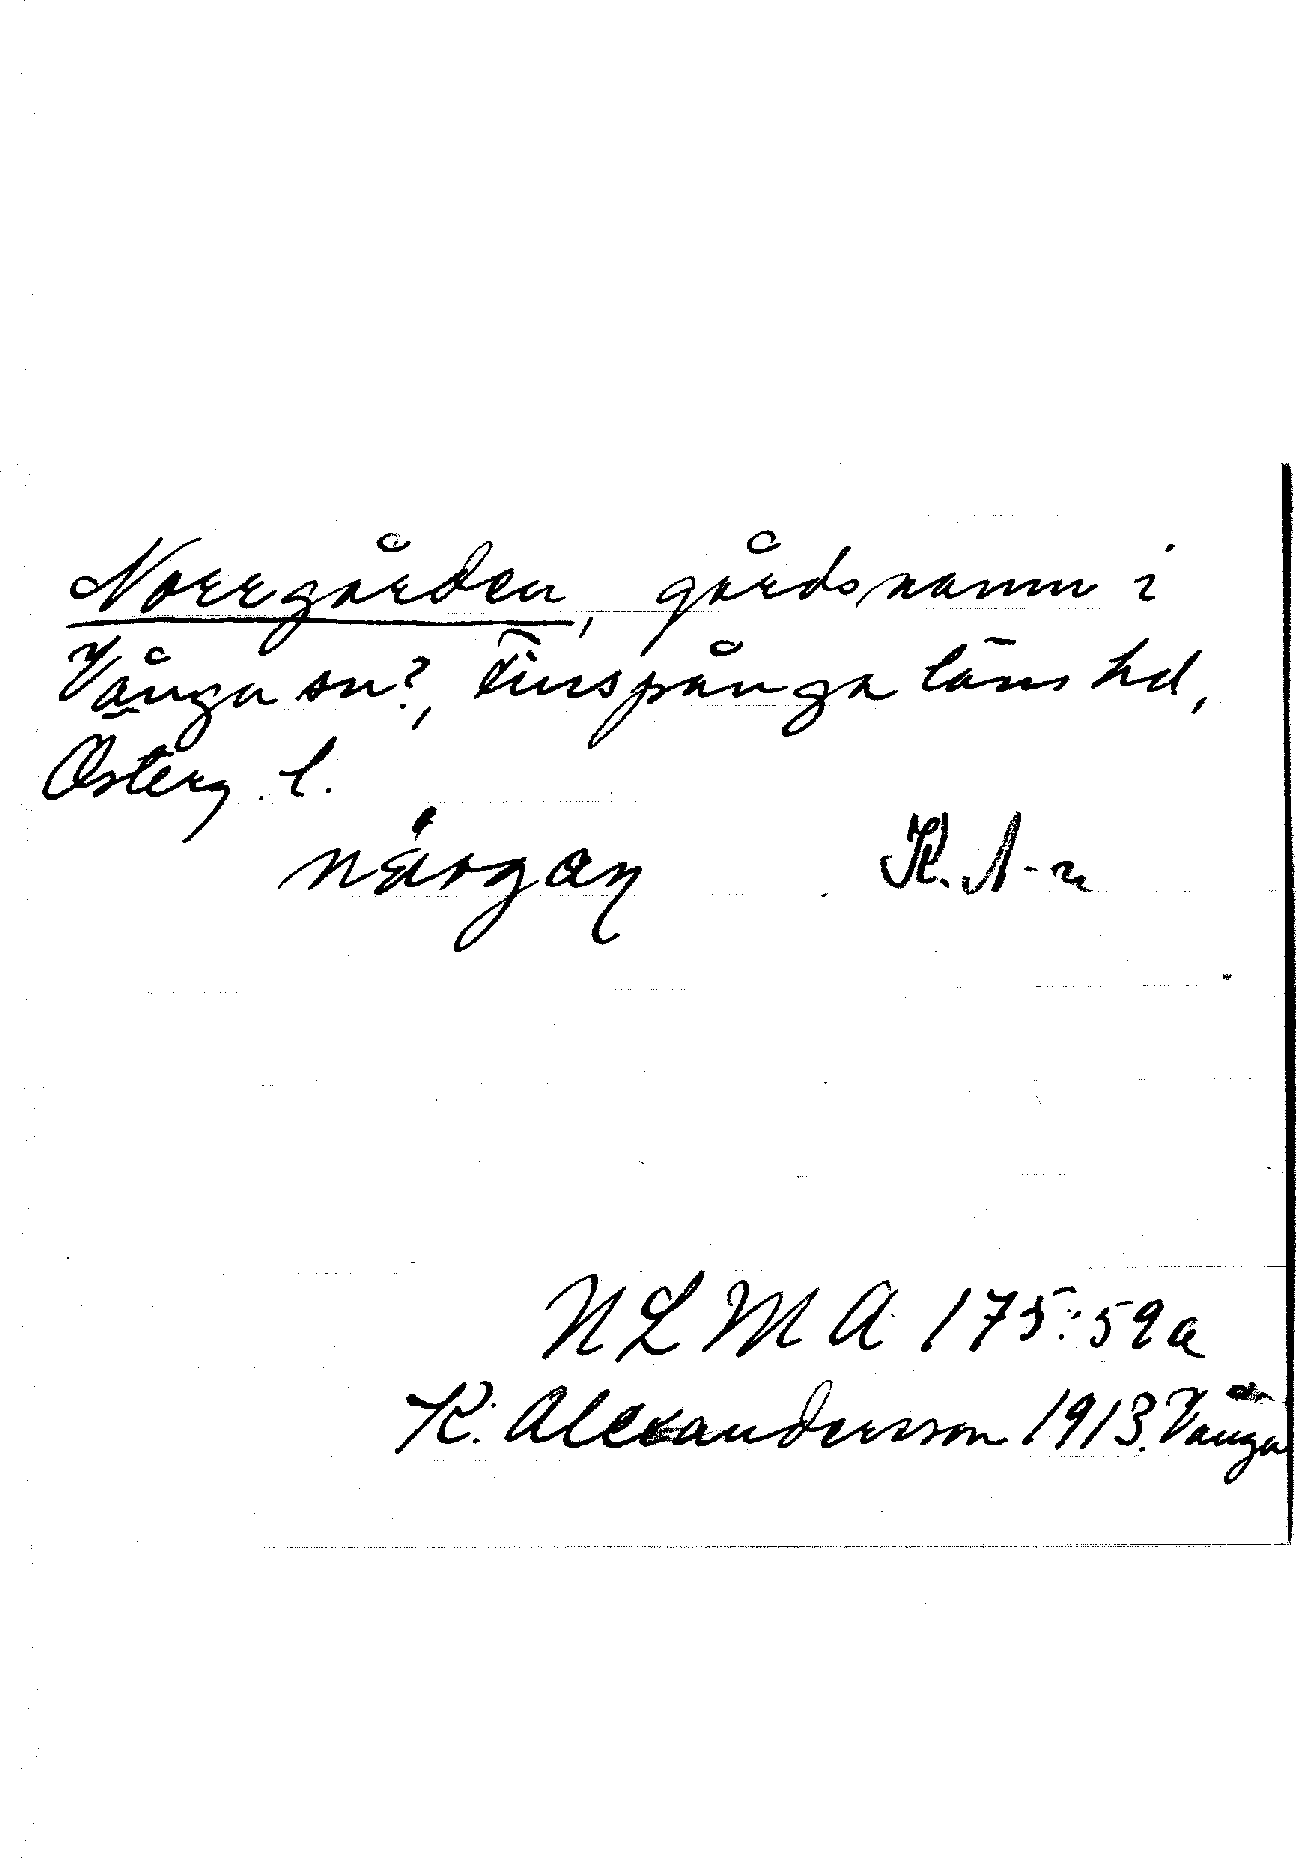 Norrgården, gårdsnamn i
Vånga sn?, Finspånga läns hd,
Österg. l.
K. A-n
N L M A 175:59a
K. Alexandersson 1913. Vånga